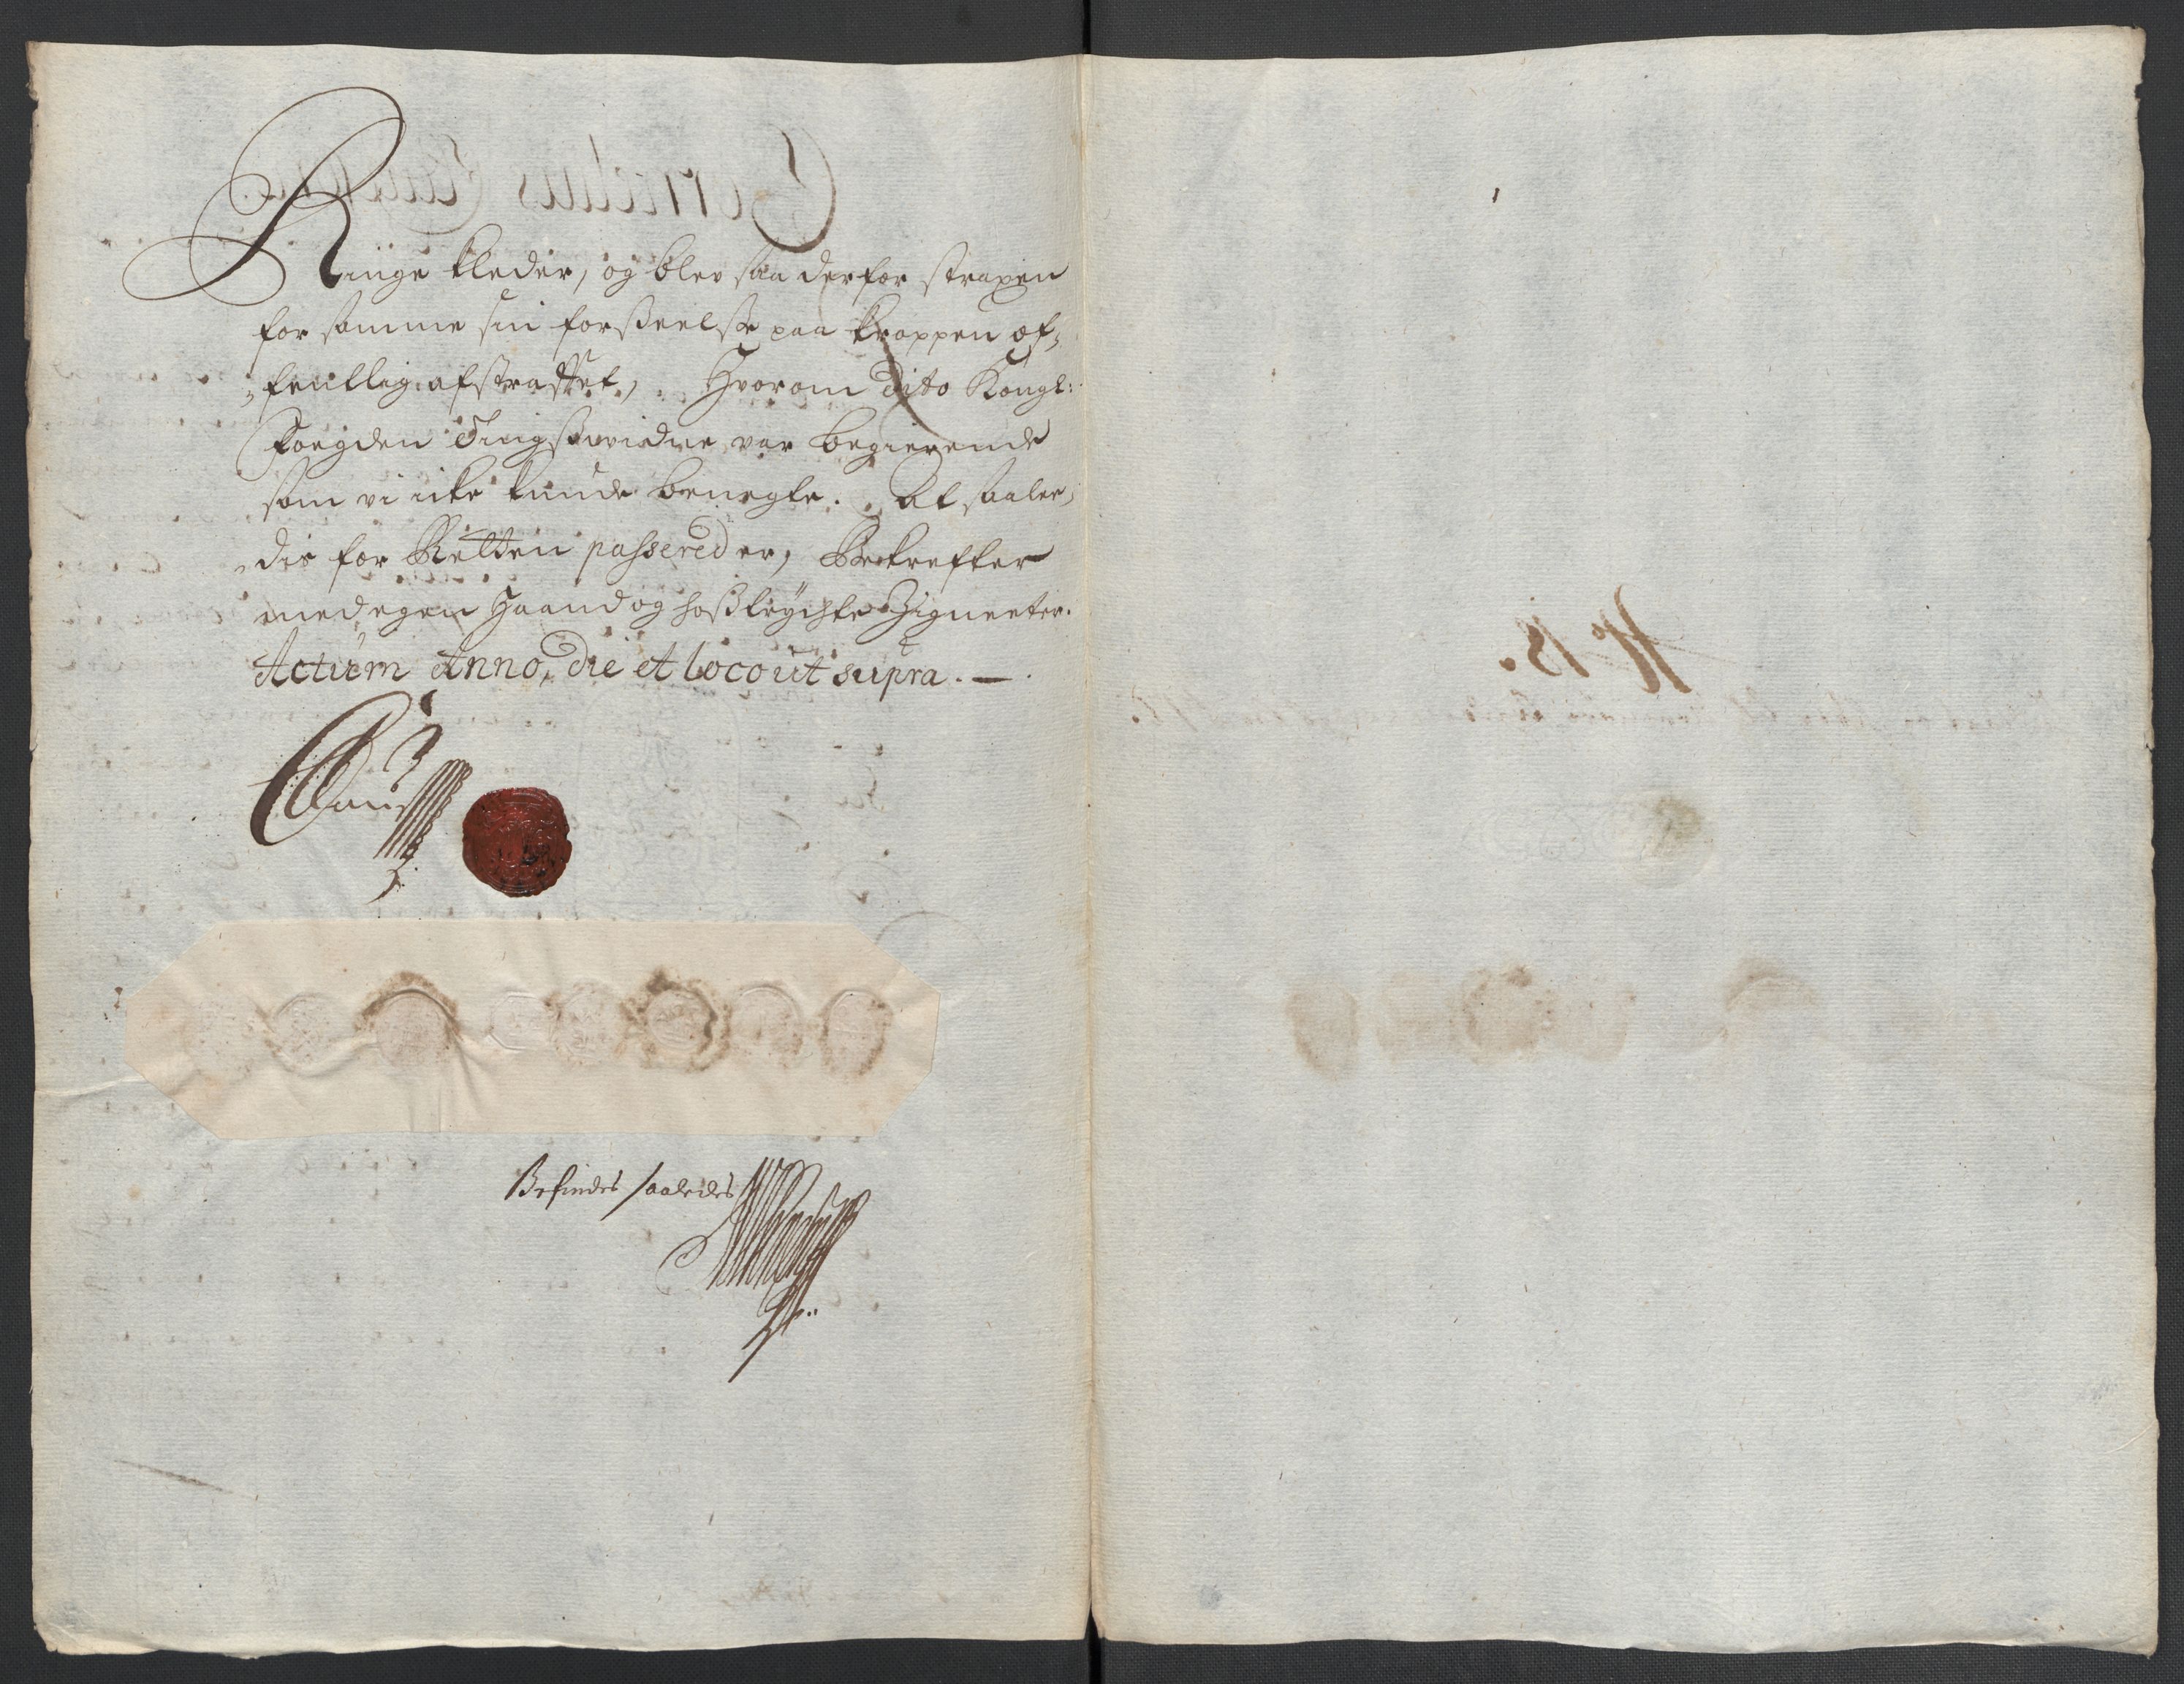 Ringe kleder, og blev saa derfor straxen
for samme sin forßeelsse paa kroppen of,,
,,fentlig afstraffet, Hvorom dito Kongl:
Foegden Tingsswidne var begierende
som vi icke kunde benegte. At saale,,
,,dis for Retten passered er, Bekrefter
med egen Haand og hoßtrychte Zigneeter.
Actum Anno, die et loco ut supra. —
Befindes saaledes
No 18.